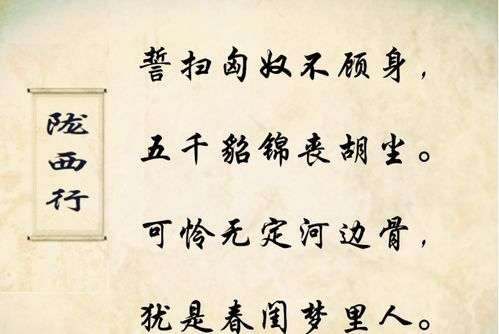 陇西行
誓扫匈奴不顾身，
五千貂锦丧胡尘。
可怜无定河边骨，
犹是春闺梦里人。